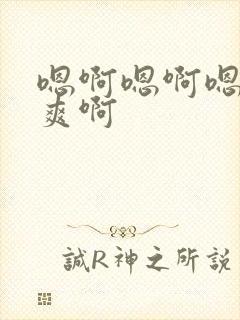 嗯啊嗯啊嗯
爽啊
誠R神之所説